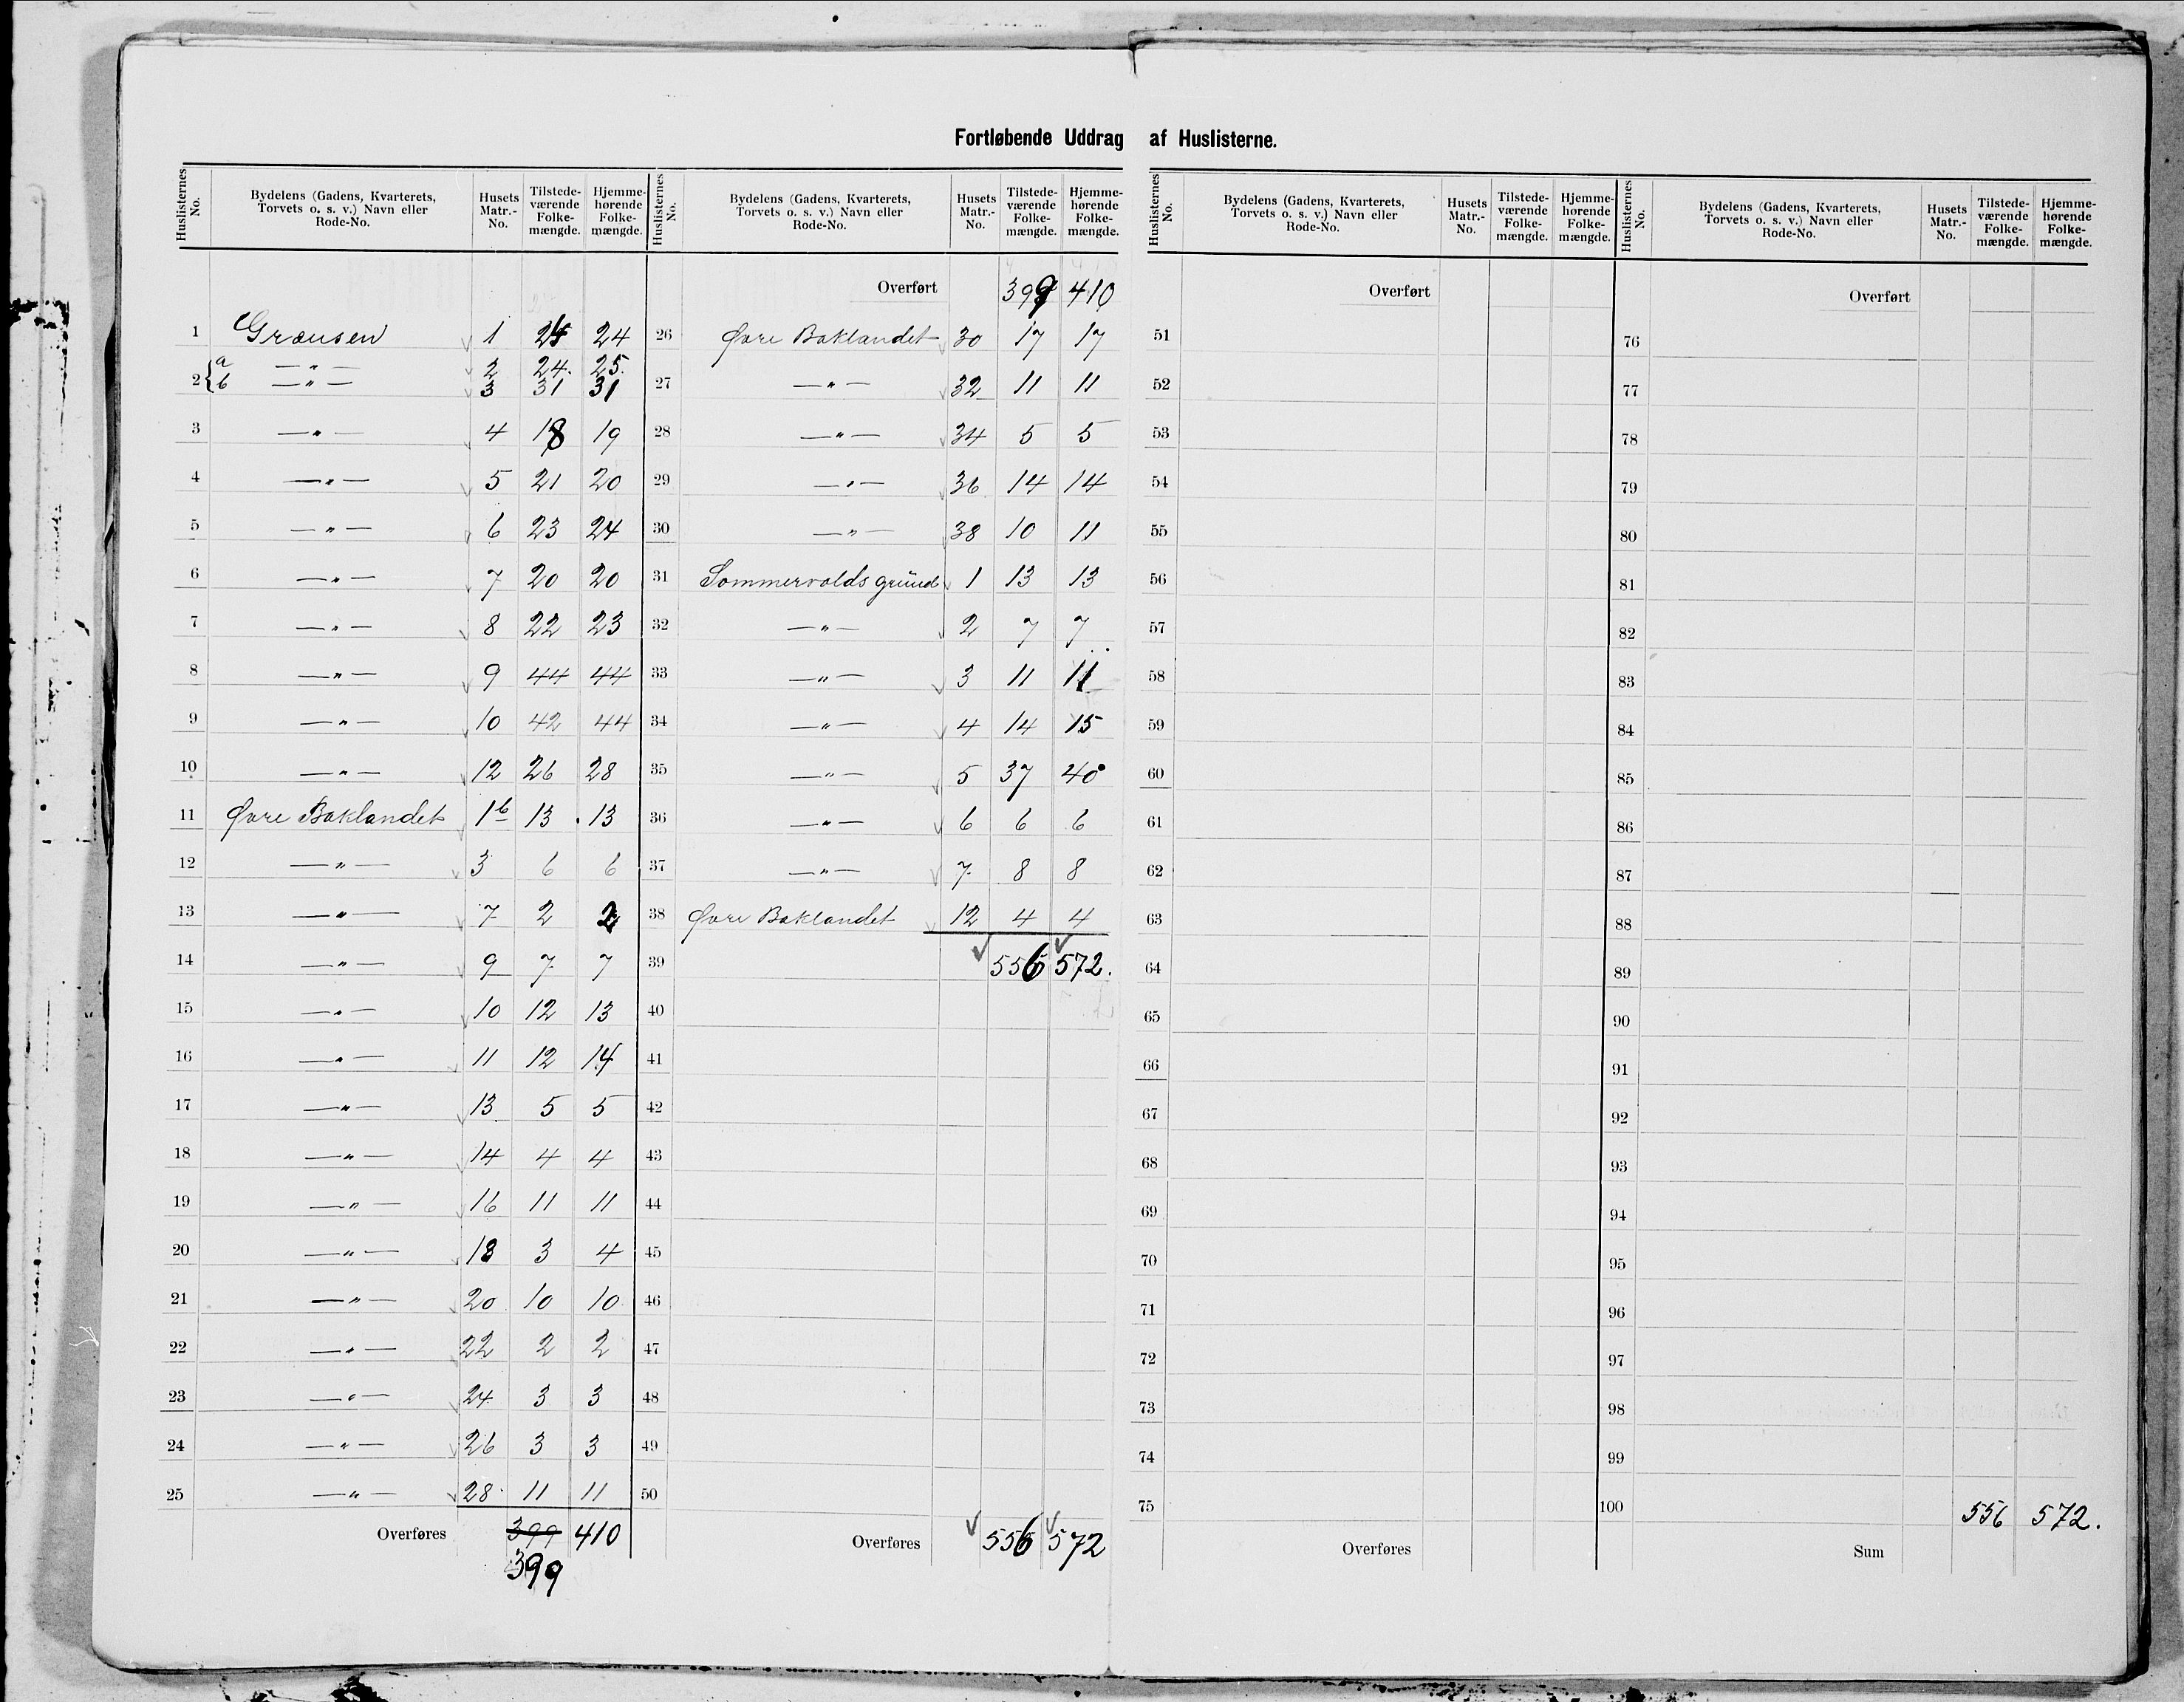 Fortløbende Uddrag af Huslisterne.
Huslisternes No. | Bydelens (Gadens, Kvarterets, Torvets o. s. v.) Navn eller Rode-No. | Husets Matr.-No. | Tilstede-værende Folke-mængde. | Hjemme-hørende Folke-mængde.
1 Grænsen 1 24
2 { a —"— 2 24. 25.
b —"— 3 31 31
3 —"— 4 18 19
4 —"— 5 21 20
5 —"— 6 23 24
6 —"— 7 20 20
7 —"— 8 22 23
8 —"— 9 44 44
9 —"— 10 42 44
10 —"— 12 26 28
11 Øvre Baklandet 1b 13 13
12 —"— 3 6 6
13 —"— 7 2 2
14 —"— 9 7 7
15 —"— 10 12 13
16 —"— 11 12 14
17 —"— 13 5 5
18 —"— 14 4 4
19 —"— 16 11 11
20 —"— 18 3 4
21 —"— 20 10 10
22 —"— 22 2 2
23 —"— 24 3 3
24 —"— 26 3 3
25 —"— 28 11 11
Overføres 399 410
399
Huslisternes No. | Bydelens (Gadens, Kvarterets, Torvets o. s. v.) Navn eller Rode-No. | Husets Matr.-No. | Tilstede-værende Folke-mængde. | Hjemme-hørende Folke-mængde.
Overført 399 410
26 Øvre Baklandet 30 17 17
27 —"— 32 11 11
28 —"— 34 5 5
29 —"— 36 14 14
30 —"— 38 10 11
31 Sommervolds grund 1 13 13
32 —"— 2 7 7
33 —"— 3 11 11
34 —"— 4 14 15
35 —"— 5 37 40
36 —"— 6 6 6
37 —"— 7 8 8
38 Øvre Baklandet 12 4 4
39 556 572.
40
41
42
43
44
45
46
47
48
49
50
Overføres 556 572
Huslisternes No. | Bydelens (Gadens, Kvarterets, Torvets o. s. v.) Navn eller Rode-No. | Husets Matr.-No. | Tilstede-værende Folke-mængde. | Hjemme-hørende Folke-mængde.
Overført
51
52
53
54
55
56
57
58
59
60
61
62
63
64
65
66
67
68
69
70
71
72
73
74
75
Overføres
Huslisternes No. | Bydelens (Gadens, Kvarterets, Torvets o. s. v.) Navn eller Rode-No. | Husets Matr.-No. | Tilstede-værende Folke-mængde. | Hjemme-hørende Folke-mængde.
Overført
76
77
78
79
80
81
82
83
84
85
86
87
88
89
90
91
92
93
94
95
96
97
98
99
100 556 572.
Sum